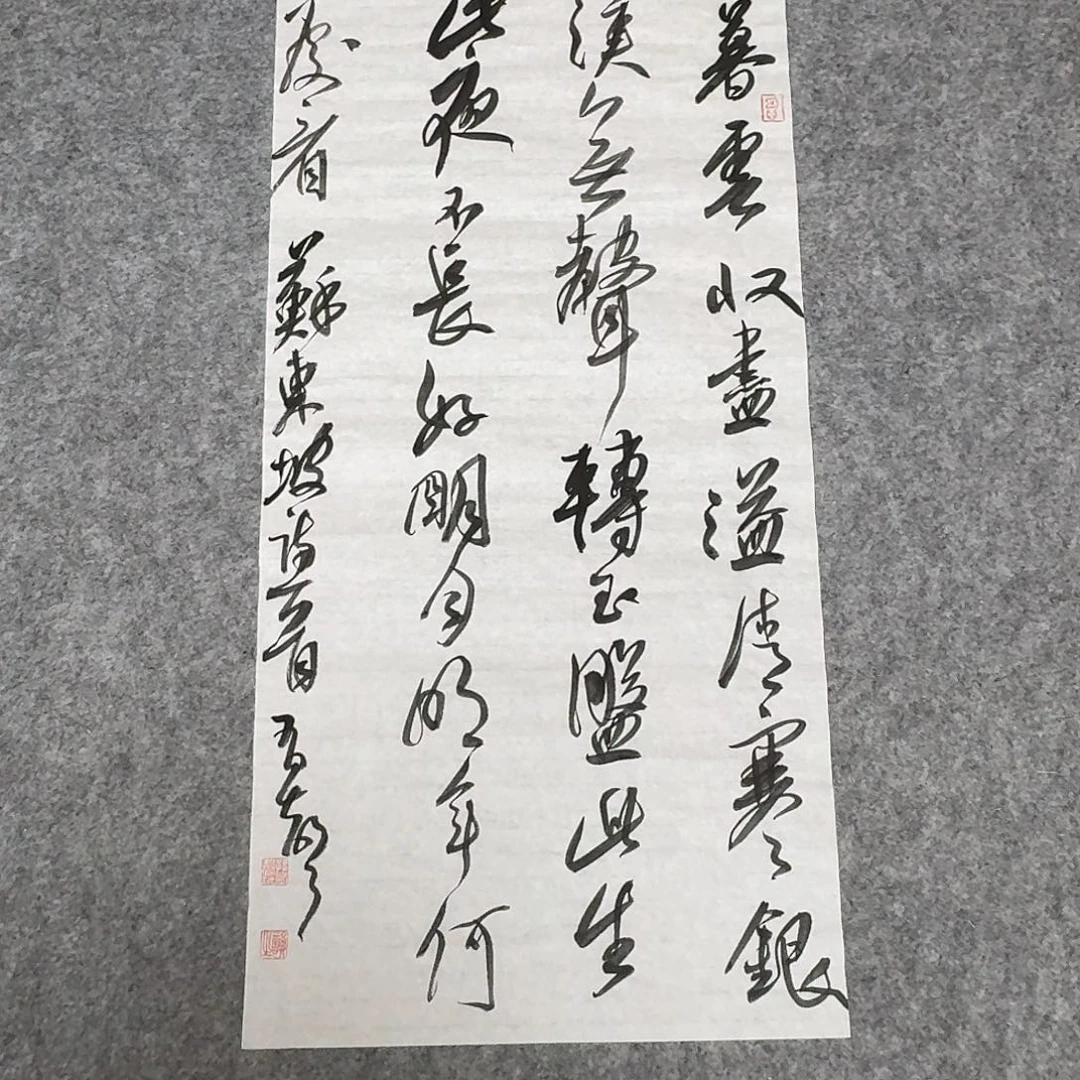 暮雲收盡溢清寒銀
漢無聲轉玉盤此生
此夜不長好明月明年何
處看 蘇東坡詩一首